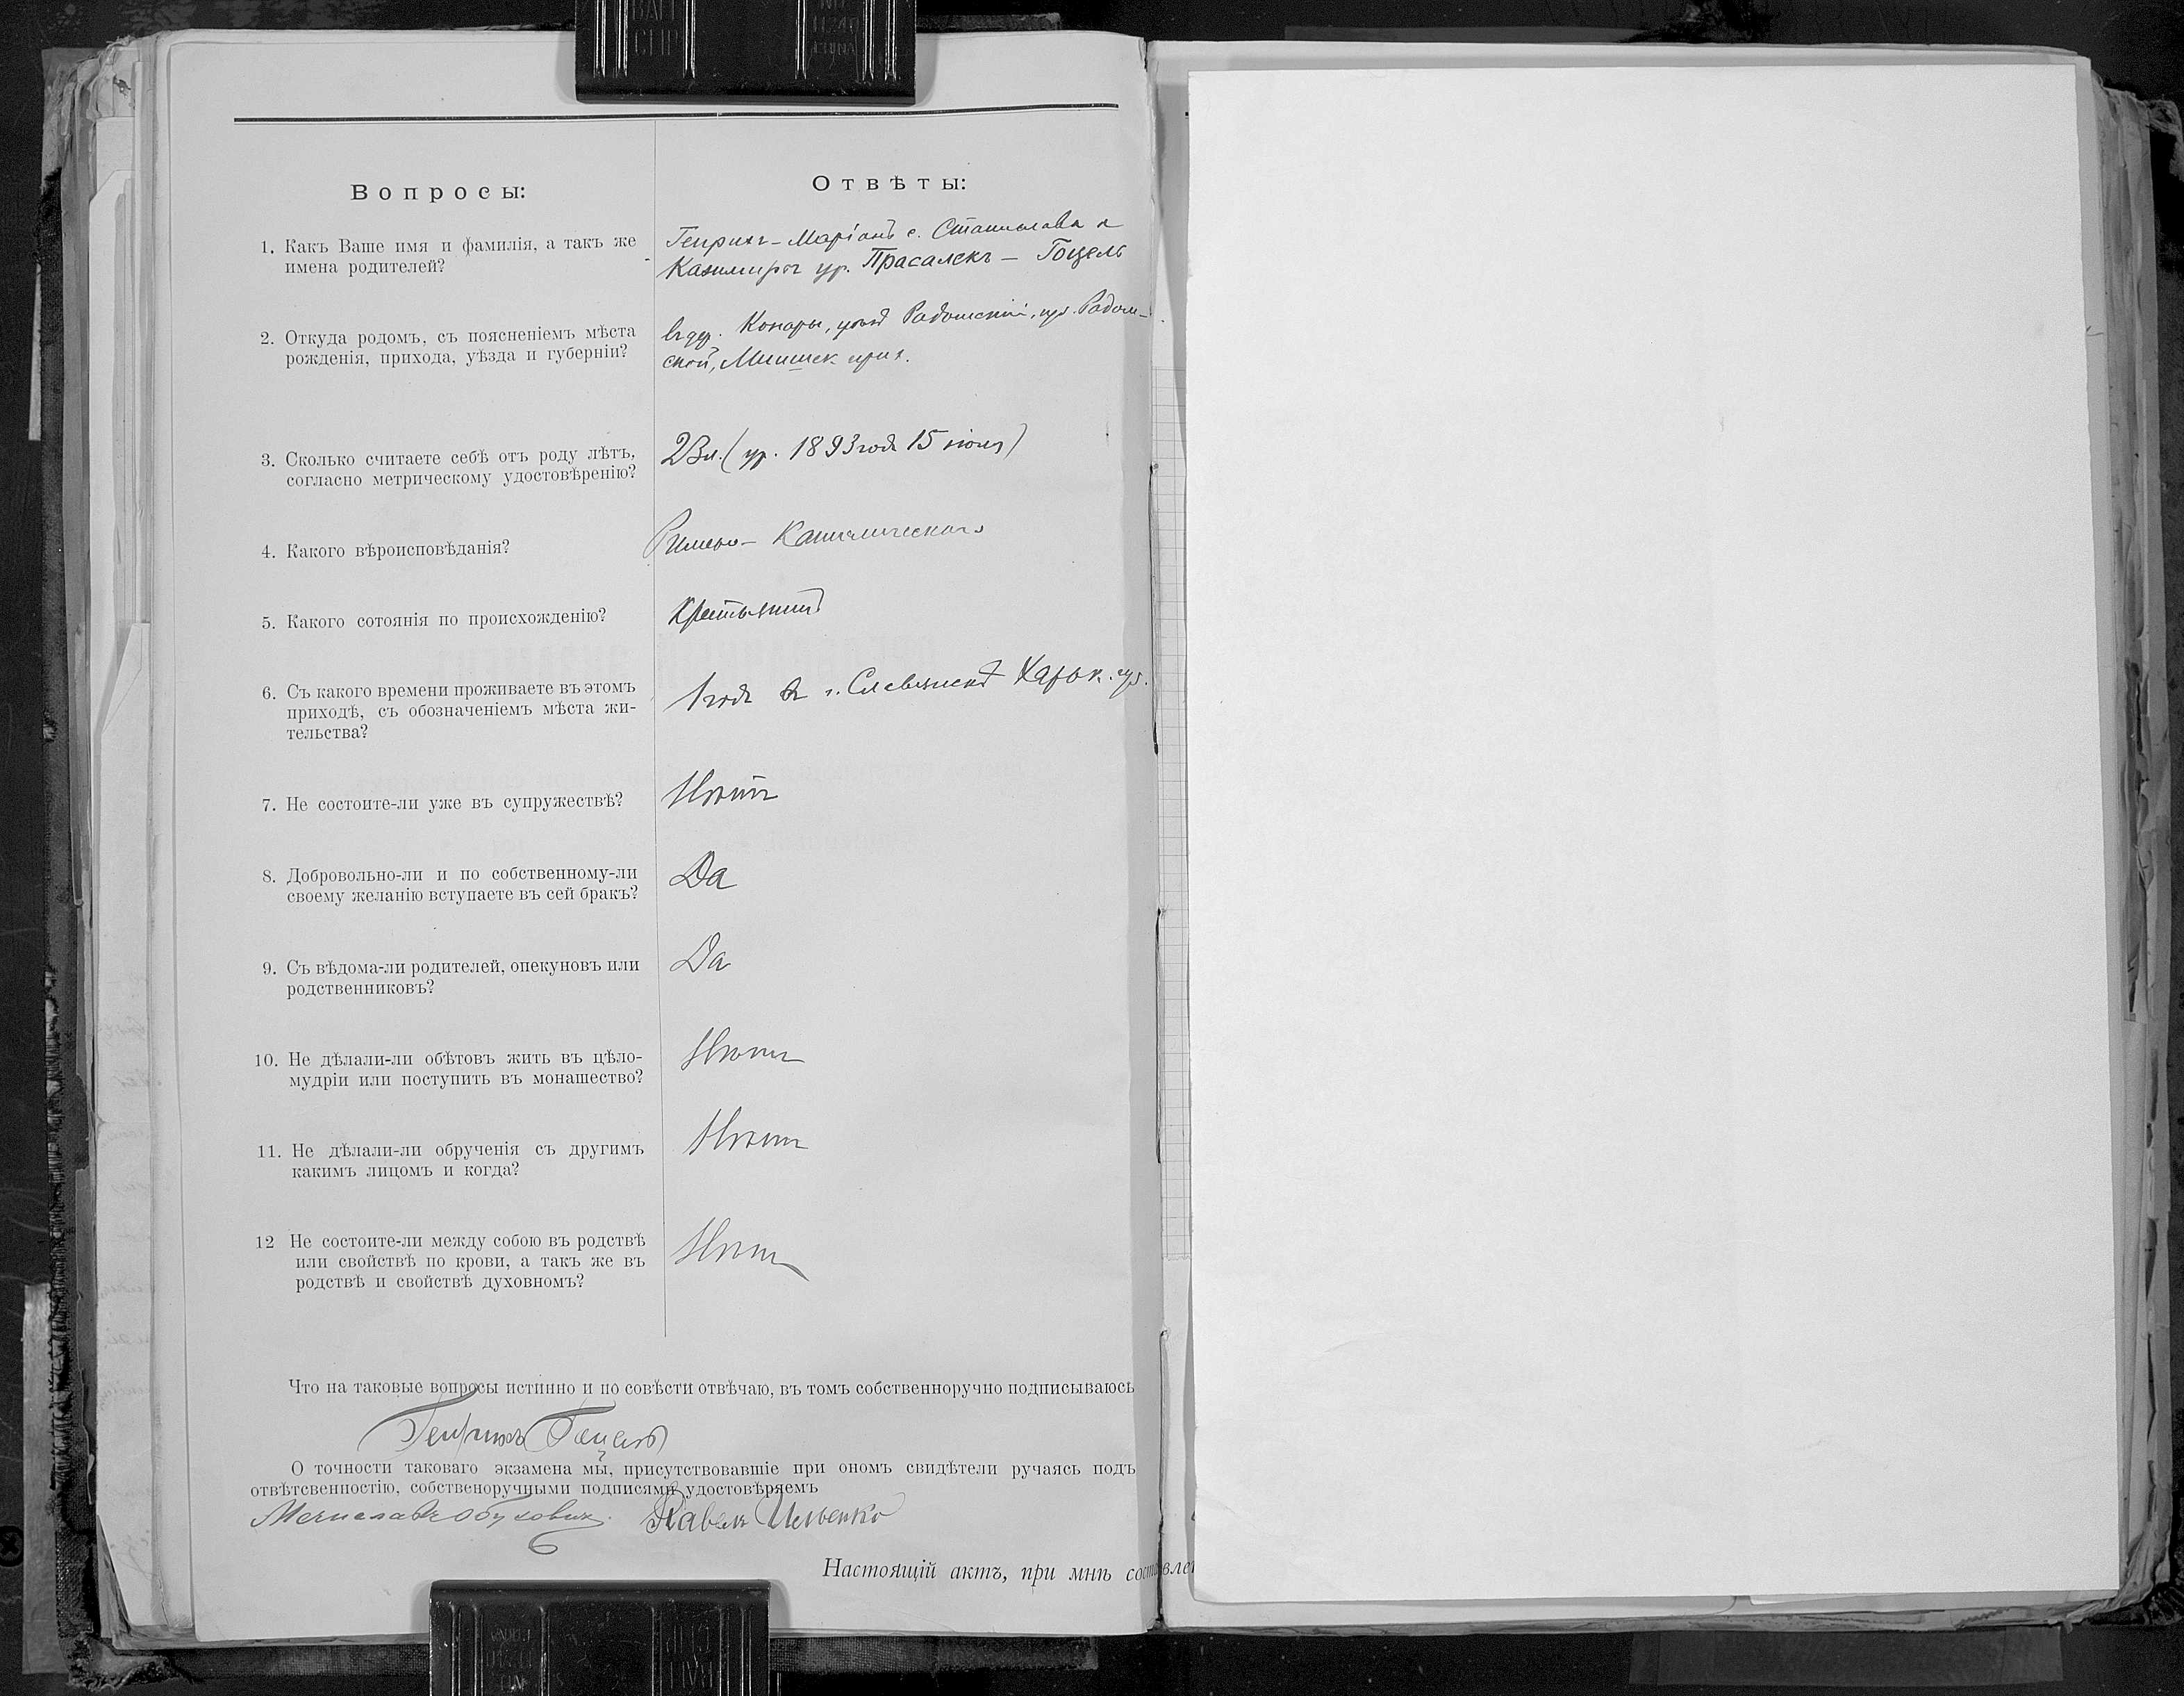 Вопросы:
Отвѣты:
1. Какъ Ваше имя и фамилія, а такъ же
имена родителей?
Генрихъ-Маріанъ с. Станислава и
Казимиры ур. Прасалекъ — Гоцель
2. Откуда родомъ, съ поясненіемъ мѣста
рожденія, прихода, уѣзда и губерніи?
Конары, уѣзд Радомскій, губ. Радом-
ской, прих.
3. Сколько считаете себѣ отъ роду лѣтъ,
согласно метрическому удостовѣренію?
23 л. (ур. 1893 года 15 іюля)
4. Какого вѣроисповѣданія?
Римско-Католическаго
5. Какого сотоянія по происхожденію?
Крестьянинъ
6. Съ какого времени проживаете въ этомъ
приходѣ, съ обозначеніемъ мѣста жи-
тельства?
1 годъ въ г. Славянскѣ Харьк. губ.
7. Не состоите-ли уже въ супружествѣ?
Нѣтъ
8. Добровольно-ли и по собственному-ли
своему желанію вступаете въ сей бракъ?
Да
9. Съ вѣдома-ли родителей, опекуновъ или
родственниковъ?
Да
10. Не дѣлали-ли обѣтовъ жить въ цѣло-
мудріи или поступить въ монашество?
Нѣтъ
11. Не дѣлали-ли обрученія съ другимъ
какимъ лицомъ и когда?
Нѣтъ
12 Не состоите-ли между собою въ родствѣ
или свойствѣ по крови, а такъ же въ
родствѣ и свойствѣ духовномъ?
Нѣтъ
Что на таковые вопросы истинно и по совѣсти отвѣчаю, въ томъ собственноручно подписываюсь
Генрихъ Гоцель
О точности таковаго экзамена мы, присутствовавшіе при ономъ свидѣтели ручаясь подъ
отвѣтсвенностію, собственоручными подписями удостовѣряемъ
Мечиславъ Обухович. Павелъ Ильенко
Настоящій актъ, при мнѣ составлен